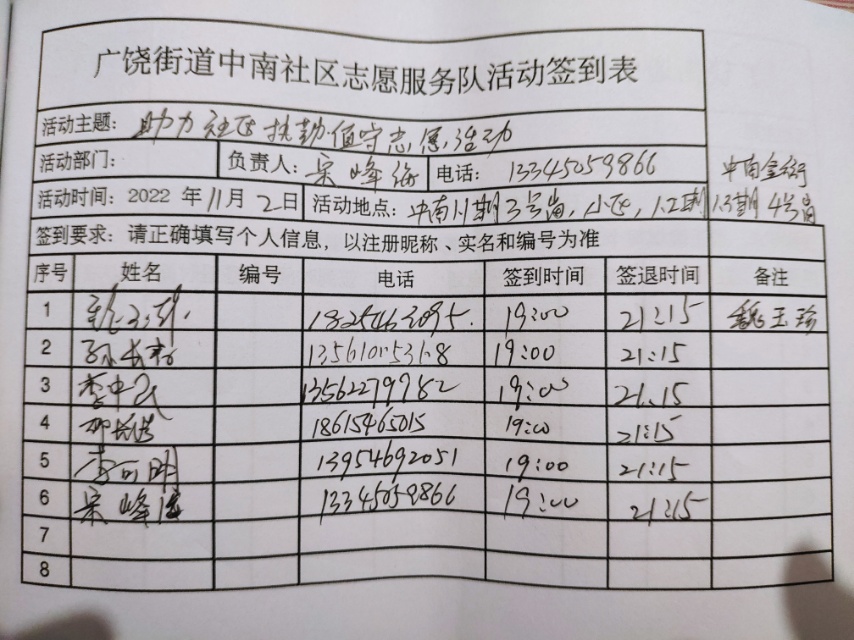 广饶街道中南社区志愿服务队活动签到表
活动主题：助力社区执勤值守志愿活动
活动部门： 负责人：宋峰海 电话：13345059866
活动时间：2022 年 11 月 2 日 活动地点：中南 期3号岗，小区 期4号岗
签到要求：请正确填写个人信息，以注册昵称、实名和编号为准
序号 姓名 编号 电话 签到时间 签退时间 备注
1 魏玉珍 19:00 21:15 魏玉珍
2 19:00 21:15
3 李中民 13562279782 19:00 21:15
4 18615465015 19:00 21:15
5 13954692051 19:00 21:15
6 宋峰海 13345059866 19:00 21:15
7
8